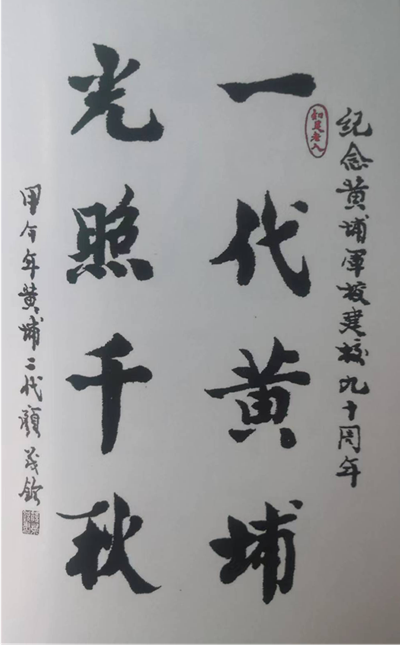 纪念黄埔军校建校九十周年
知足老人
一代黄埔
光照千秋
甲午年黄埔二代颜